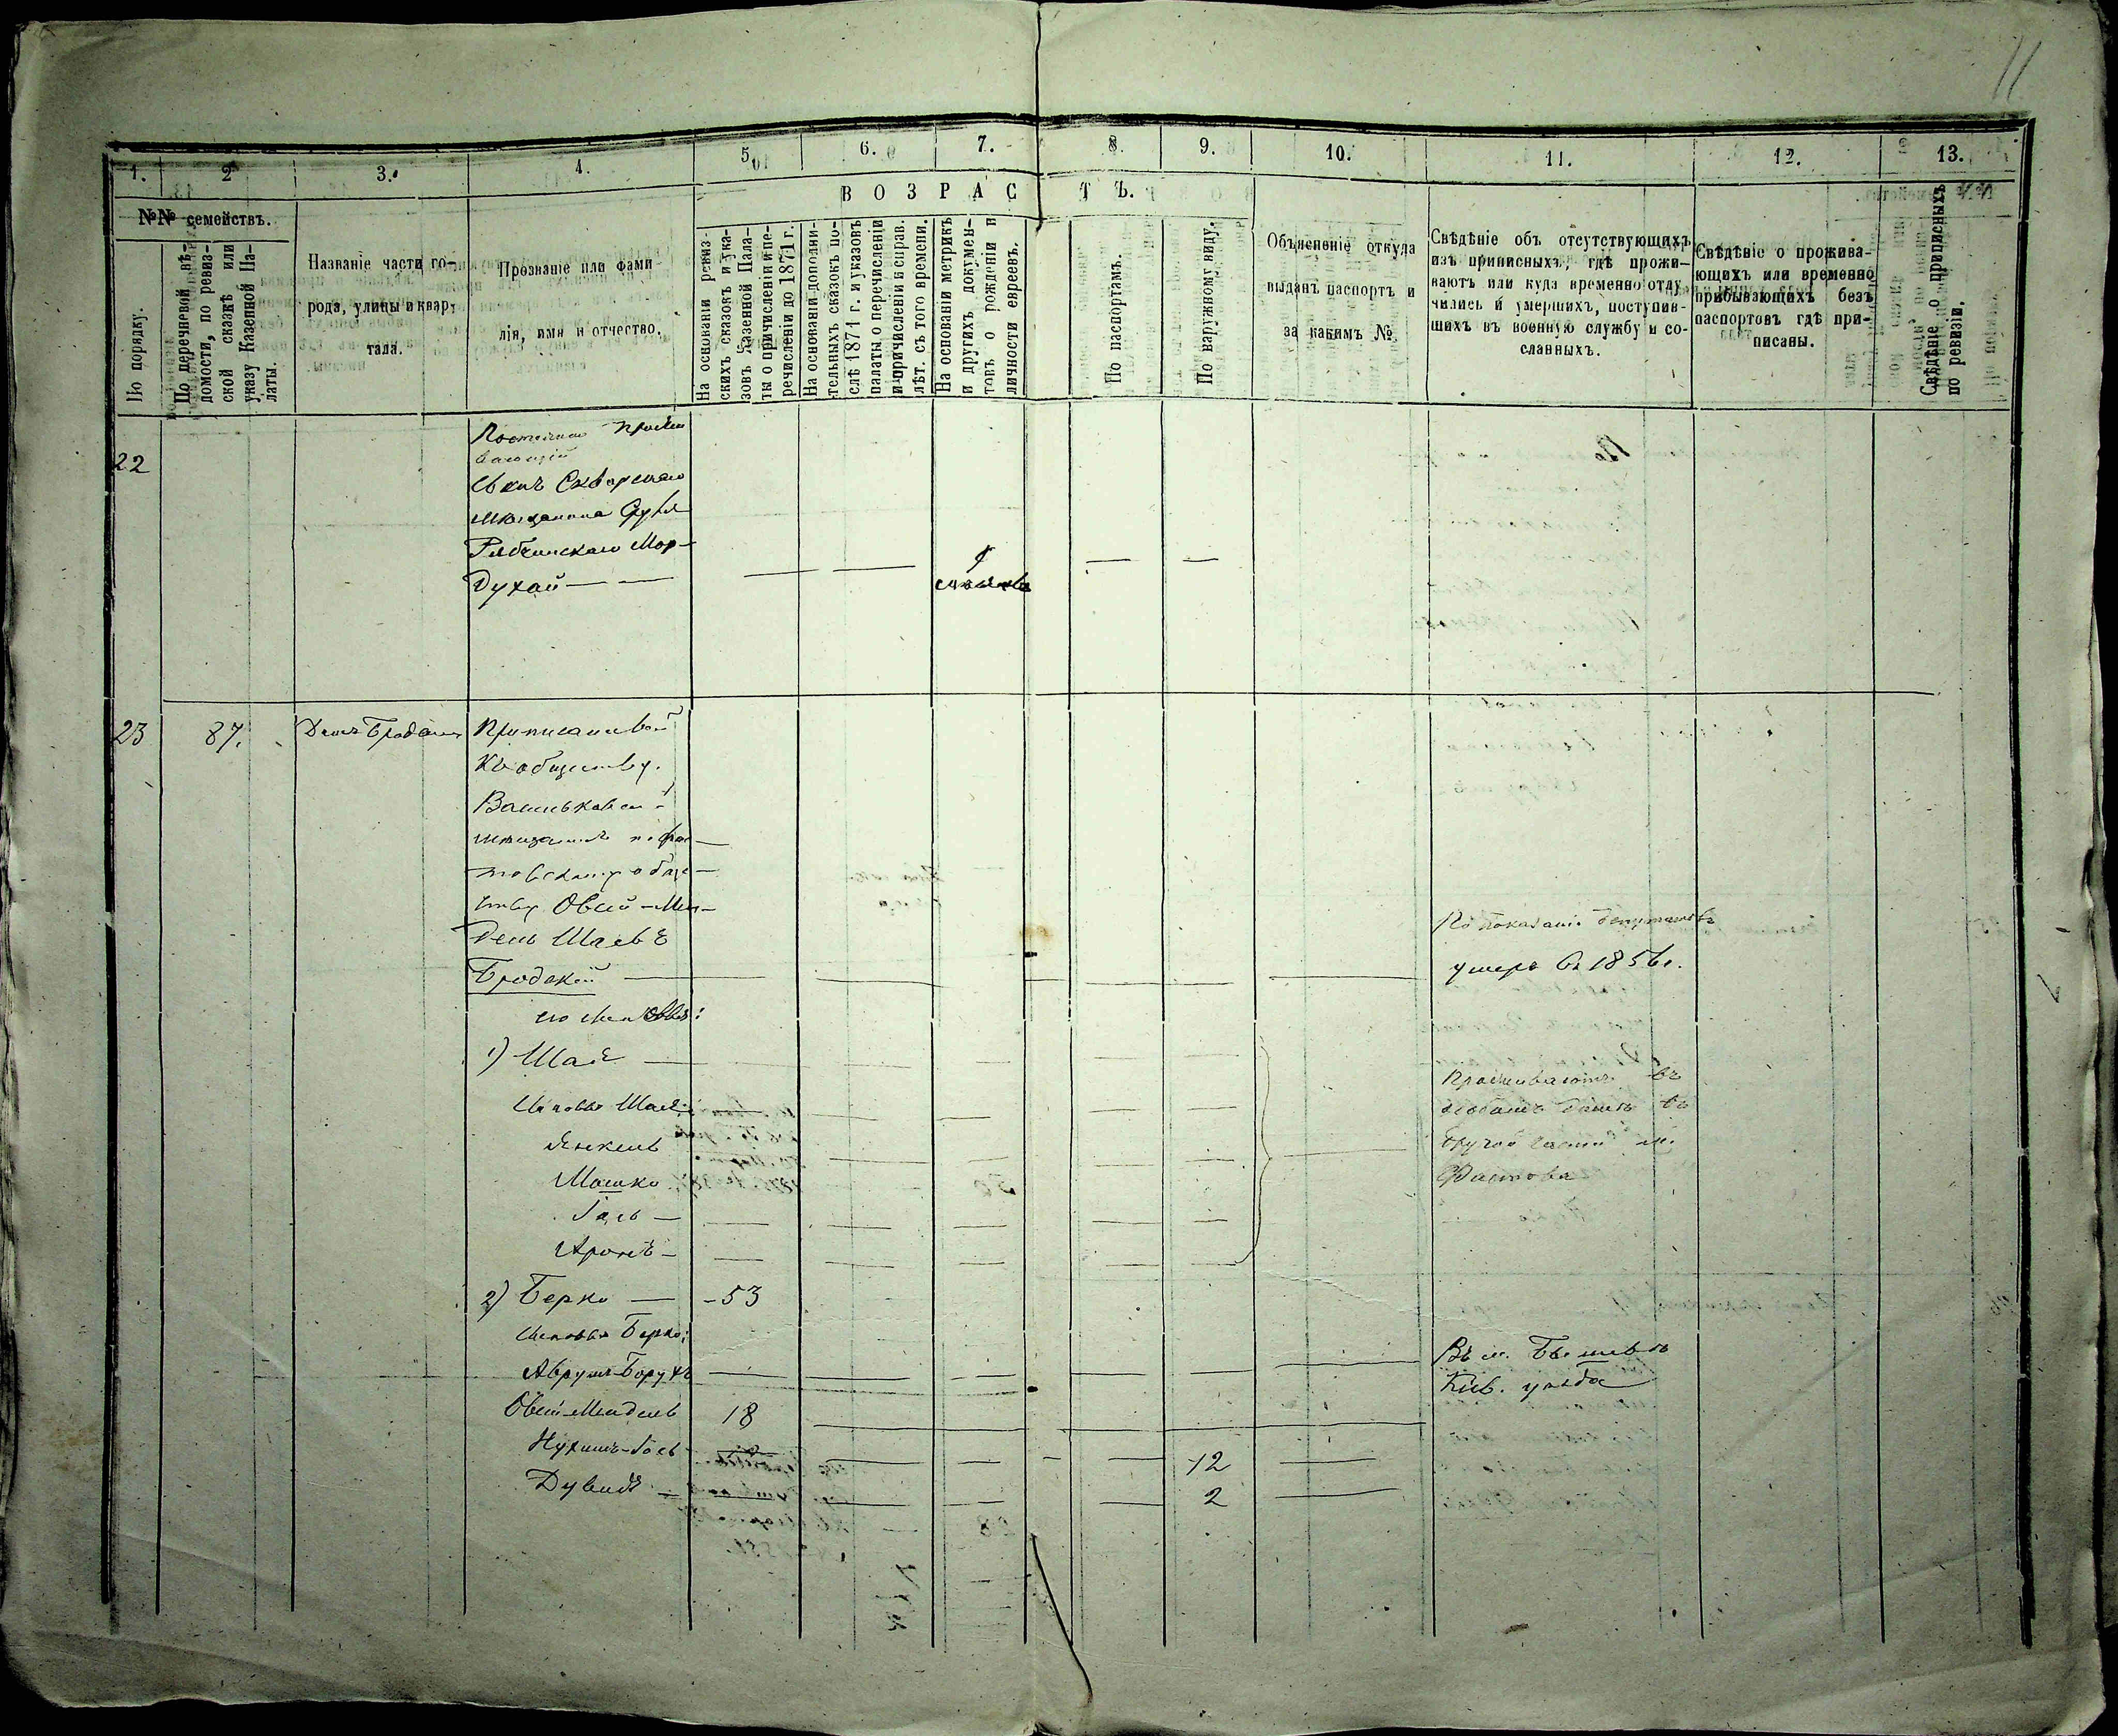 11
1. 2 3. 4. 5. 6. 7. 8. 9. 10. 11. 12. 13.
ВОЗРАСТЪ.
№№ семействъ.
По порядку.
По перечневой вѣ-
домости, по ревиз-
ской сказкѣ или
указу Казенной Па-
латы.
Названіе части го-
рода, улицы и квар-
тала.
Прозваніе или фами-
лія, имя и отчество.
На основаніи ревиз-
скихъ сказокъ и ука-
зовъ Казенной Пала-
ты о причисленіи и пе-
речисленіи до 1871 г.
На основаніи дополни-
тельныхъ сказокъ по-
слѣ 1871 г. и указовъ
палаты о перечисленіи
и причисленіи и справ.
лѣт. съ того времени.
На основаніи метрикъ
и другихъ докумен-
товъ о рожденіи и
личности евреевъ.
По паспортамъ.
По наружному виду.
Объясненіе откуда
выданъ паспортъ и
за какимъ №
Свѣдѣніе объ отсутствующихъ
изъ приписныхъ, гдѣ прожи-
ваютъ или куда временно отлу-
чились и умершихъ, поступив-
шихъ въ военную службу и со-
сланныхъ.
Свѣдѣніе о прожива-
ющихъ или временно
прибывающихъ безъ
паспортовъ гдѣ при-
писаны.
Свѣдѣніе о приписныхъ
по ревизіи.
22
вающій
Сквирскаго
мѣщанина
Мор-
духай — —
23 87. Приписанный
къ обществу.
Васильковскій
мѣщанинъ по фас-
товскому обще-
ству Овсій-Мен-
дель Шаевъ
Бродскій
По показанію депутатовъ
умеръ въ 1856 г.
его сыновья:
1) Шая
Сыновья Шаи:
Янкель
Мошко
Гось —
Аронъ —
Проживаютъ въ
особомъ домѣ въ
другой части м.
Фастова
2) Берко — 53
Сыновья Берко:
Аврумъ-Борухъ
Въ м. Бышевѣ
Кіев. уѣзда
Овсій-Мендель 18
Нухимъ-Гось 12
Дувидъ 2